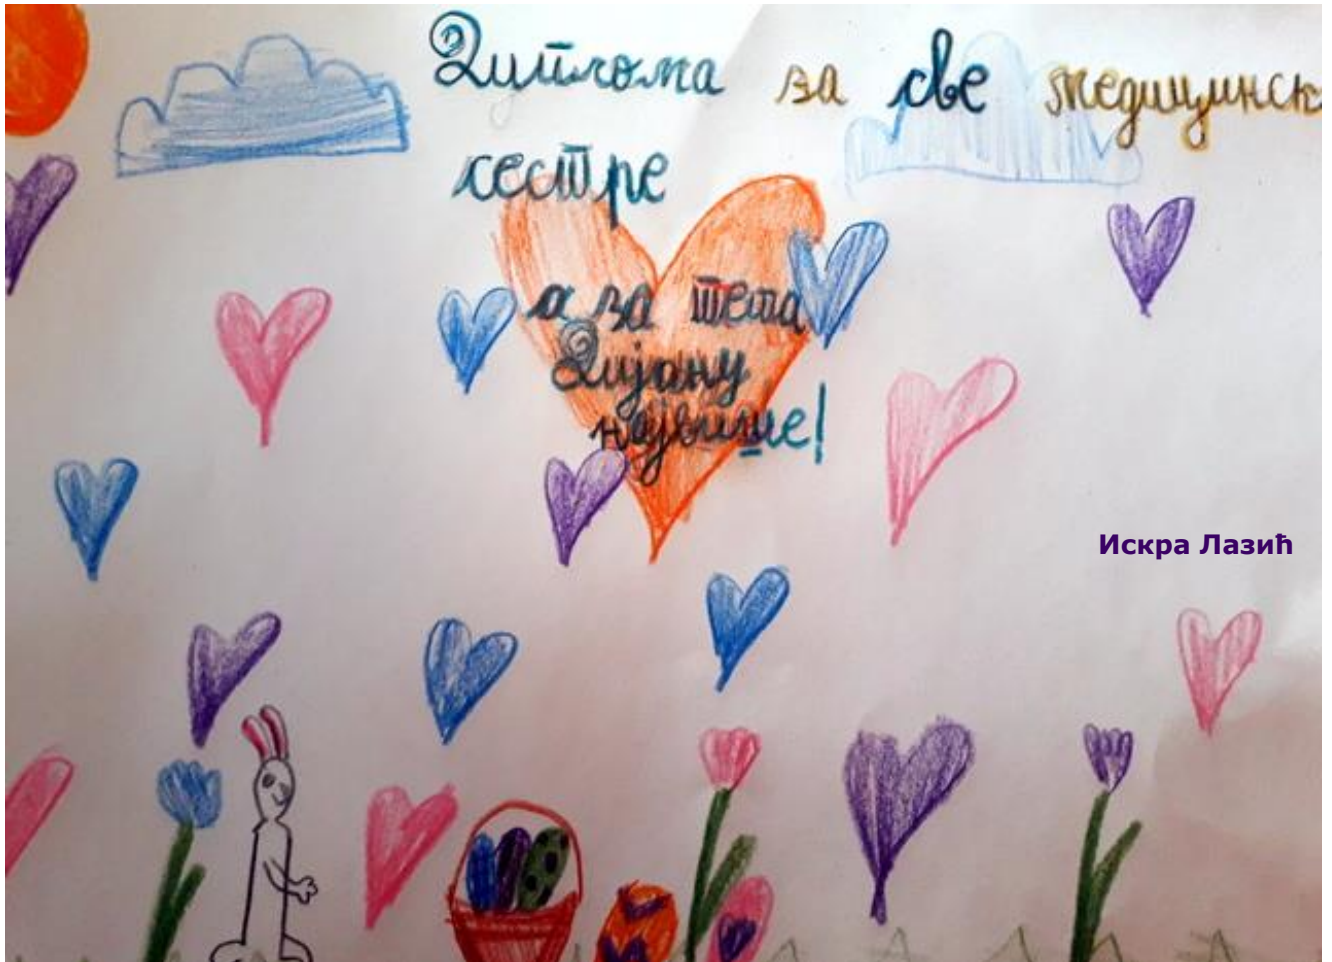 Диплома за све медицинск
сестре
а за тета
Дијану
највише!
Искра Лазић